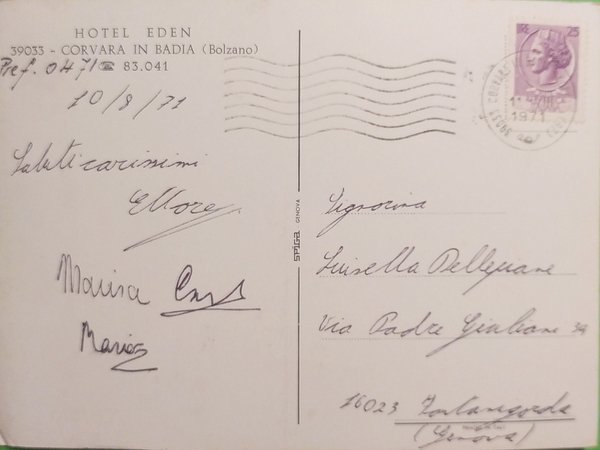 HOTEL EDEN
39033 - CORVARA IN BADIA (Bolzano)
Pref. 0471 ☎ 83.041
10/8/71
Saluti carissimi
Ettore
Marisa
Mario
SPIGA GENOVA
25
1971
Signorina
Luisella Pellegrane
Via Padre Giuliani 34
16023 Fontanigorda
(Genova)